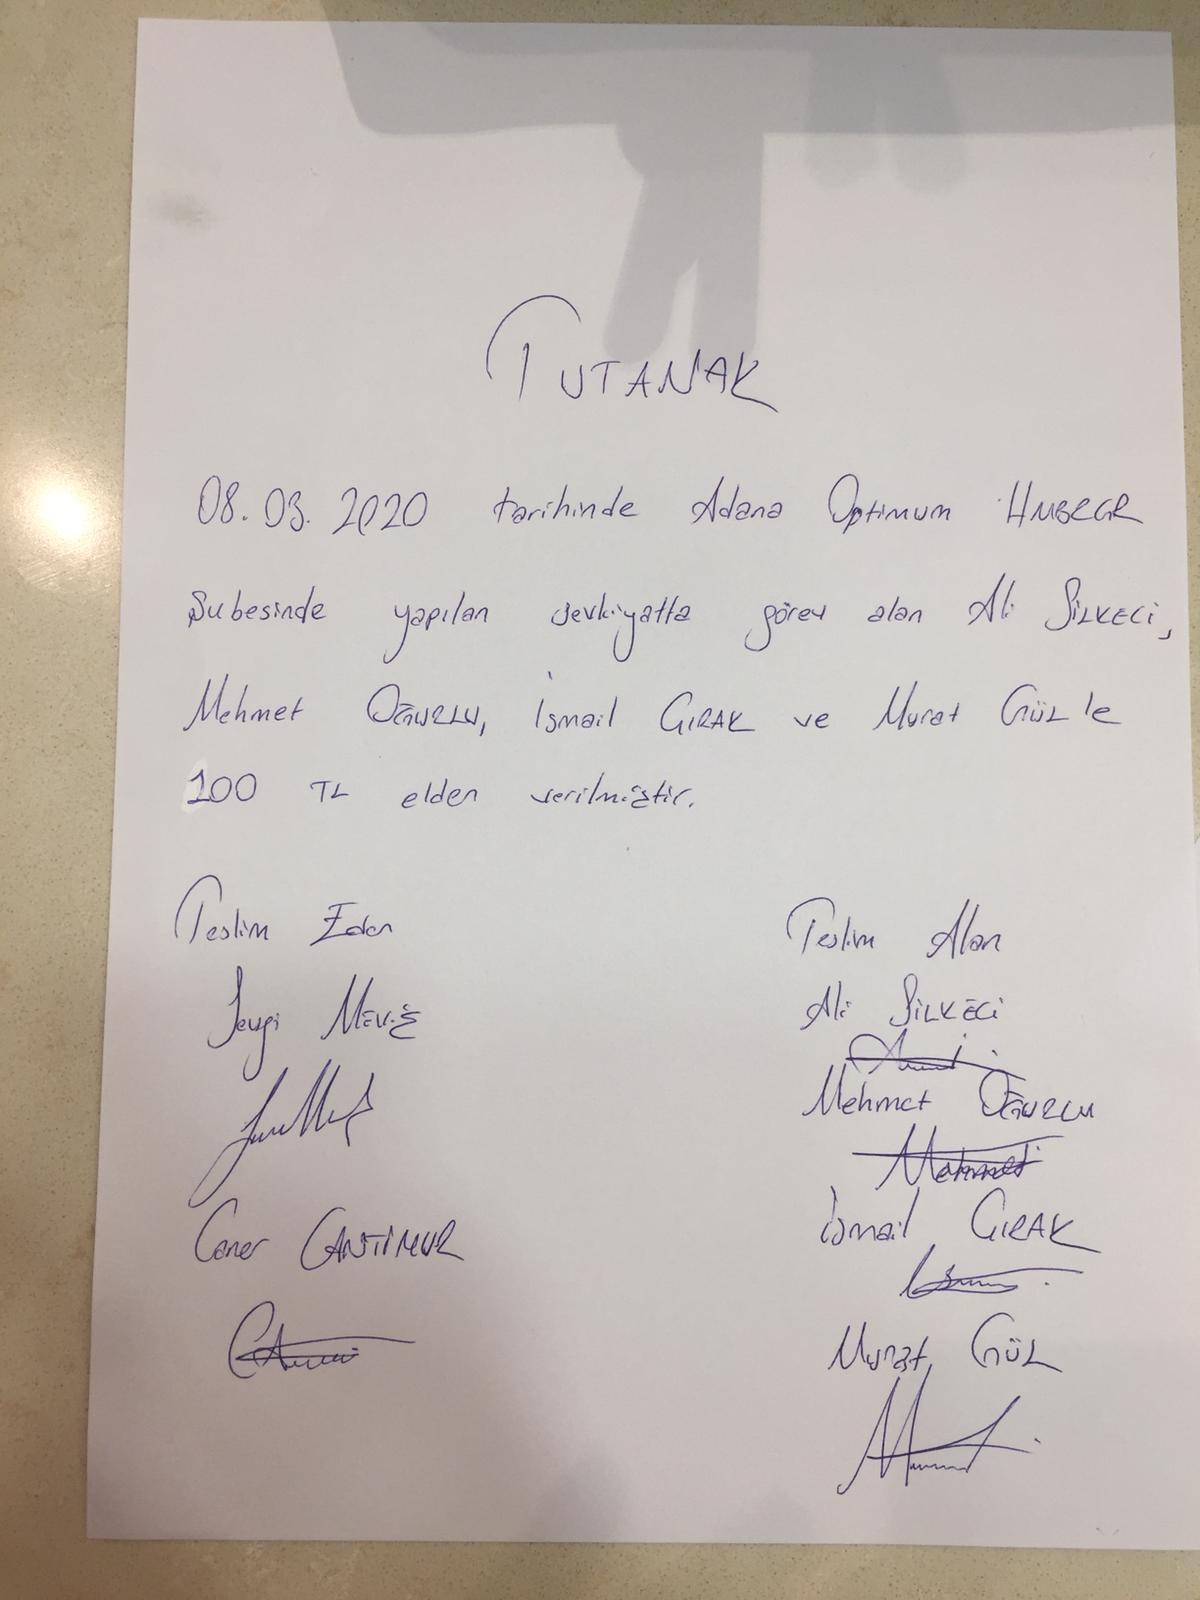 TUTANAK
08.03.2020 tarihinde Adana Optimum HMBRGR
Şubesinde yapılan sevkiyatta görev alan Ali SİLKECİ,
Mehmet OĞURLU, İsmail GIRAK ve Murat GÜL'e
100 TL elden verilmiştir.
Teslim Eden
Teslim Alan
Sevgi MEVİŞ
Ali SİLKECİ
Mehmet OĞURLU
Mehmet
Caner CANTİMUR
İsmail GIRAK
Murat GÜL